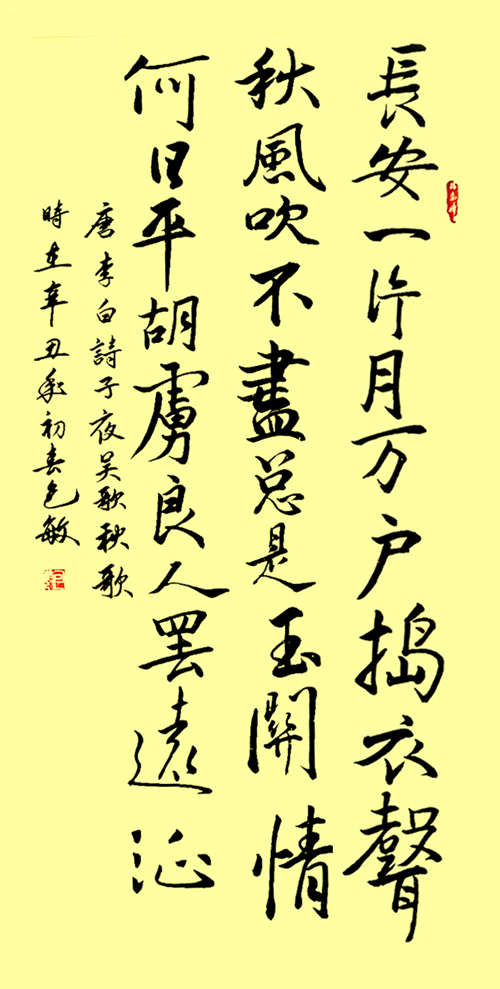 長安一片月万户搗衣聲
秋風吹不盡总是玉關情
何日平胡虜良人罢遠征
唐李白詩子夜吴歌秋歌
時在辛丑秊初春包敏